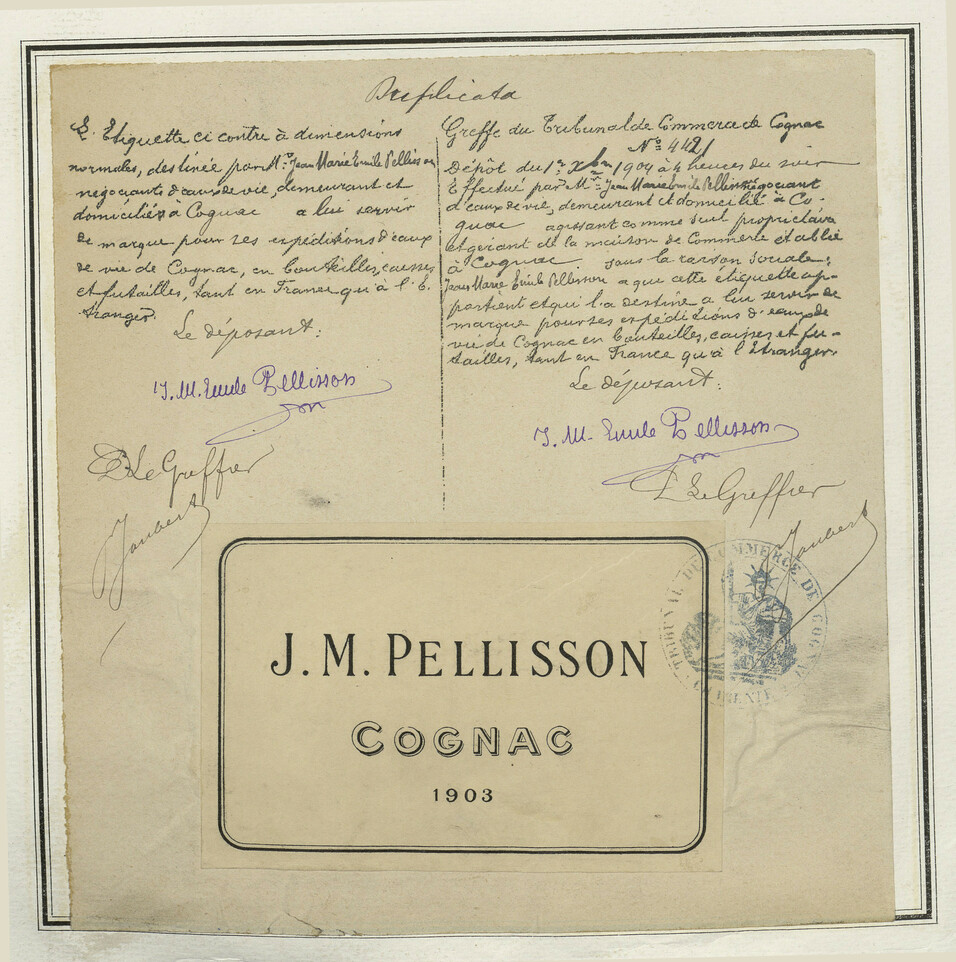 Duplicata
L'Etiquette ci contre à dimensions
normales, destinée par Mr Jean Marie Emile Pellisson
négociants d'eaux de vie, demeurant et
domiciliés à Cognac a lui servir
de marque pour ses expéditions d'eaux
de vie de Cognac, en bouteilles, caisses
et futailles, tant en France qu'à l'E-
tranger.
Le déposant:
J. M. Emile Pellisson
Le Greffier
Joubert
Greffe du Tribunal de Commerce de Cognac
No 4421
Dépôt du 1er Xbre 1904 à 4 heures du soir
Effectué par Mr Jean Marie Emile Pellisson négociant
d'eaux de vie, demeurant et domicilié à Co-
gnac agissant comme seul propriétaire
et gérant de la maison de Commerce établie
à Cognac sous la raison sociale:
Jean Marie Emile Pellisson a qui cette étiquette ap-
partient et qui l'a destine a lui servir de
marque pour ses expéditions d'eaux de
vie de Cognac en bouteilles, caisses et fu-
tailles, tant en France qu'à l'Etranger.
Le déposant:
J. M. Emile Pellisson
Le Greffier
Joubert
TRIBUNAL DE COMMERCE DE COGNAC
CHARENTE
J. M. PELLISSON
COGNAC
1903